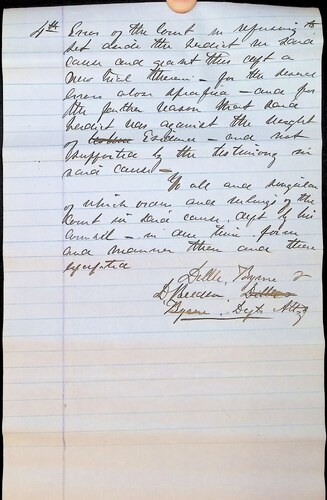 4th Error of the Court in refusing to
set aside the verdict in said
cause and grant this deft a
New trial therein - for the several
errors above specified - and for
the further reason that said
verdict was against the weight
of Evidence - and not
supported by the testimony in
said cause -
To all and singular
of which orders and rulings of the
Court in said cause, deft by his
Counsel - in due time - form
and manner then and there
excepted
Byrne &
Byrne Defts Attys